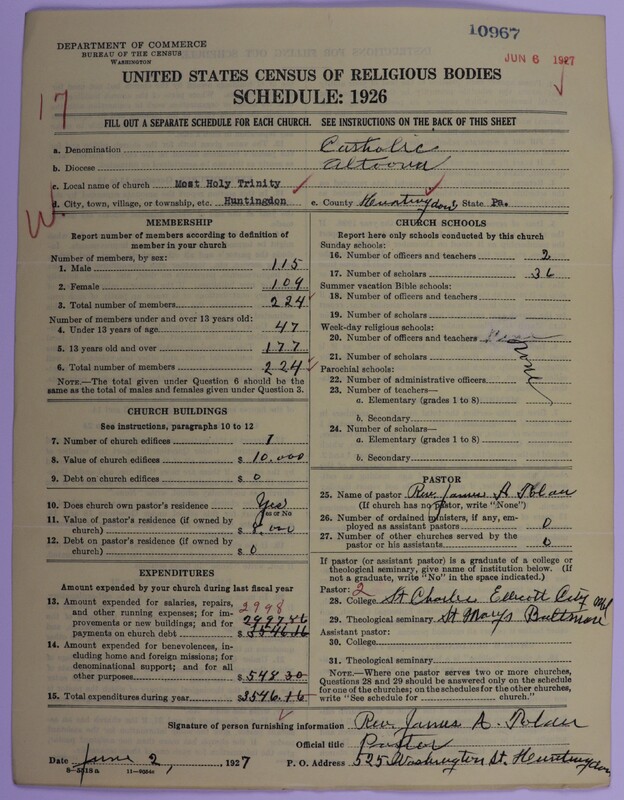 10967
JUN 6 1927
DEPARTMENT OF COMMERCE
BUREAU OF THE CENSUS
WASHINGTON
UNITED STATES CENSUS OF RELIGIOUS BODIES
SCHEDULE: 1926
17
FILL OUT A SEPARATE SCHEDULE FOR EACH CHURCH. SEE INSTRUCTIONS ON THE BACK OF THIS SHEET
a. Denomination Catholic
b. Diocese Altoona
c. Local name of church Most Holy Trinity
d. City, town, village, or township, etc. Huntingdon e. County Huntingdon, State Pa.
W
MEMBERSHIP
Report number of members according to definition of member in your church
Number of members, by sex:
1. Male 115
2. Female 109
3. Total number of members 224
Number of members under and over 13 years old:
4. Under 13 years of age 47
5. 13 years old and over 177
6. Total number of members 224
NOTE.—The total given under Question 6 should be the same as the total of males and females given under Question 3.
CHURCH BUILDINGS
See instructions, paragraphs 10 to 12
7. Number of church edifices 1
8. Value of church edifices $ 10,000
9. Debt on church edifices $ 0
10. Does church own pastor's residence Yes
Yes or No
11. Value of pastor's residence (if owned by church) $ 8,000
12. Debt on pastor's residence (if owned by church) $ 0
EXPENDITURES
Amount expended by your church during last fiscal year
13. Amount expended for salaries, repairs, and other running expenses; for improvements or new buildings; and for payments on church debt $ 2998
2997.86
3546.16
14. Amount expended for benevolences, including home and foreign missions; for denominational support; and for all other purposes $ 548.30
15. Total expenditures during year $ 3546.16
CHURCH SCHOOLS
Report here only schools conducted by this church
Sunday schools:
16. Number of officers and teachers 2
17. Number of scholars 36
Summer vacation Bible schools:
18. Number of officers and teachers
19. Number of scholars
Week-day religious schools:
20. Number of officers and teachers
21. Number of scholars
None
Parochial schools:
22. Number of administrative officers
23. Number of teachers—
a. Elementary (grades 1 to 8)
b. Secondary
24. Number of scholars—
a. Elementary (grades 1 to 8)
b. Secondary
PASTOR
25. Name of pastor Rev. James A. Tolan
(If church has no pastor, write "None")
26. Number of ordained ministers, if any, employed as assistant pastors 0
27. Number of other churches served by the pastor or his assistants 0
If pastor (or assistant pastor) is a graduate of a college or theological seminary, give name of institution below. (If not a graduate, write "No" in the space indicated.)
Pastor: 2
28. College St Charles Ellicott City Md
29. Theological seminary St Marys Baltimore
Assistant pastor:
30. College
31. Theological seminary
NOTE.—Where one pastor serves two or more churches, Questions 28 and 29 should be answered only on the schedule for one of the churches; on the schedules for the other churches, write "See schedule for church."
Signature of person furnishing information Rev. James A. Tolan
Official title Pastor
Date June 2, 1927 P. O. Address 525 Washington St. Huntingdon
8-5518 a